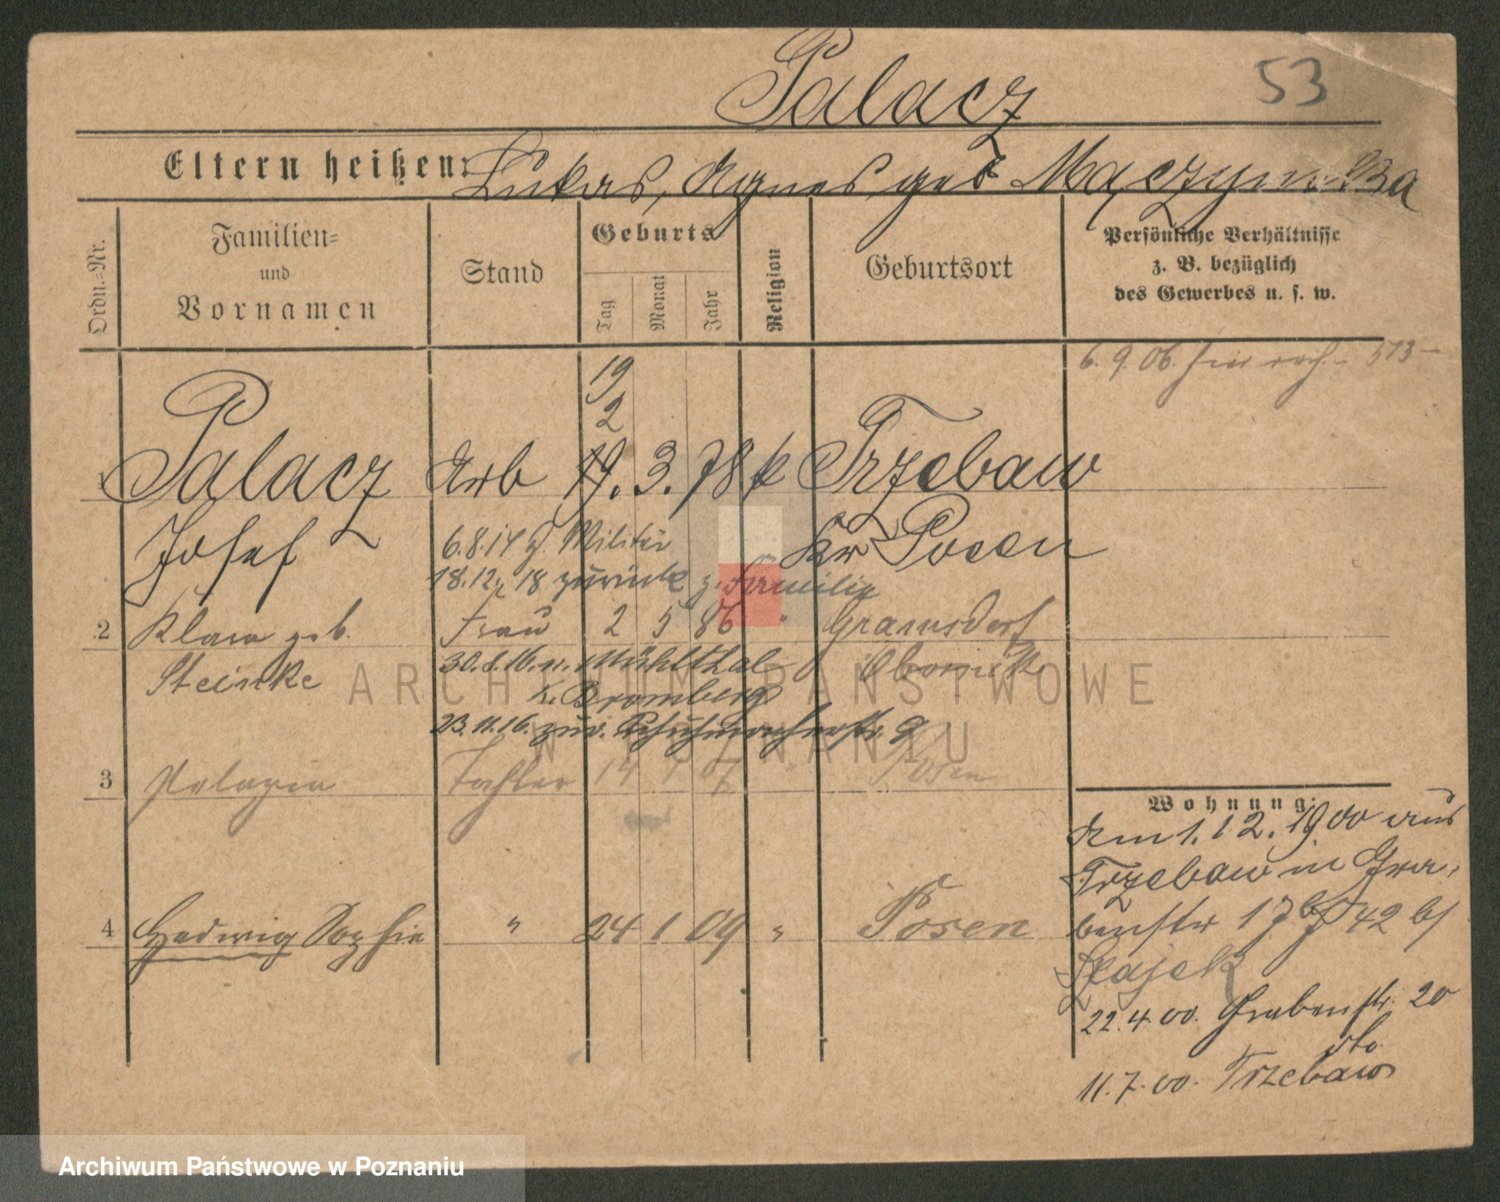 Palacz 53
Eltern heißen: Lukas, Agnes geb Mączynska
Ordn.-Nr.
Familien- und Vornamen
Stand
Geburts
Tag Monat Jahr
Religion
Geburtsort
Persönliche Verhältnisse
z. B. bezüglich
des Gewerbes u. s. w.
6.9.06. 573
19
2
1 Palacz Arb 19. 3. 78 k Trzebaw
Josef Kr Posen
6.8.14 z. Militär
18.12. 18 zurück z. Familie
2 Klara geb. Frau 2 5 86 " Gramsdorf
Steinke Obornik
30.8.16. n. Mühlthal
Kr. Bromberg
23.11.16. zur. Schuhmacherstr. 9
3 Pelagia Tochter 14 1 07 " Posen
4 Hedwig Sophie " 24 1 09 " Posen
Wohnung:
Am 1.12.1900 aus
Trzebaw in Gra-
benstr 17 42 bs
22.4.00. Grabenstr. 20
11.7.00. Trzebaw
ARCHIWUM PAŃSTWOWE
W POZNANIU
Archiwum Państwowe w Poznaniu